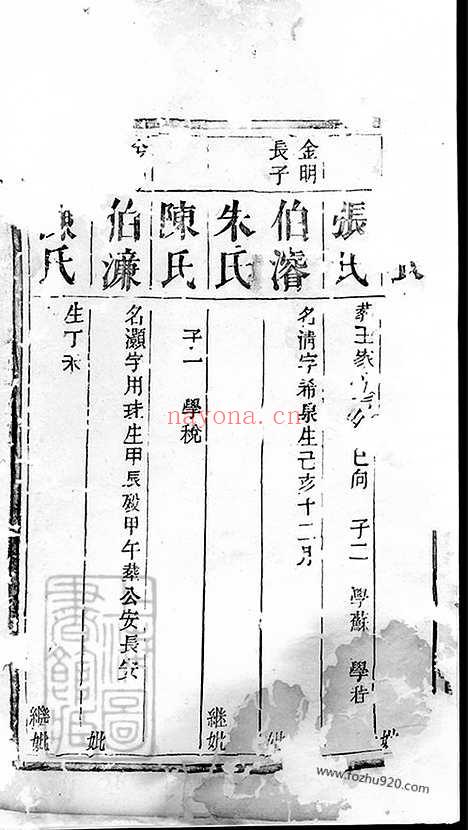 氏
張氏 葬王家 巳向 子二 學蘇 學
妣
金明長子 伯濬 名清字希泉生己亥十二月
妣
朱氏
繼妣
陳氏 子一 學稅
伯濂 名灝字用珪生甲辰歿甲午葬公安長安
妣
陳氏 生丁未
繼妣
nayona.cn
www.fozhu920.com